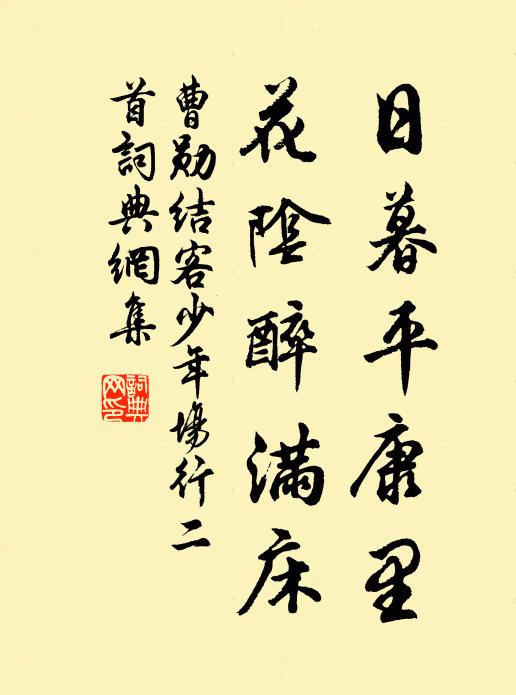 日暮平康里
花陰醉滿床
曹勛結客少年場行二
首詞典網集
詞典網印